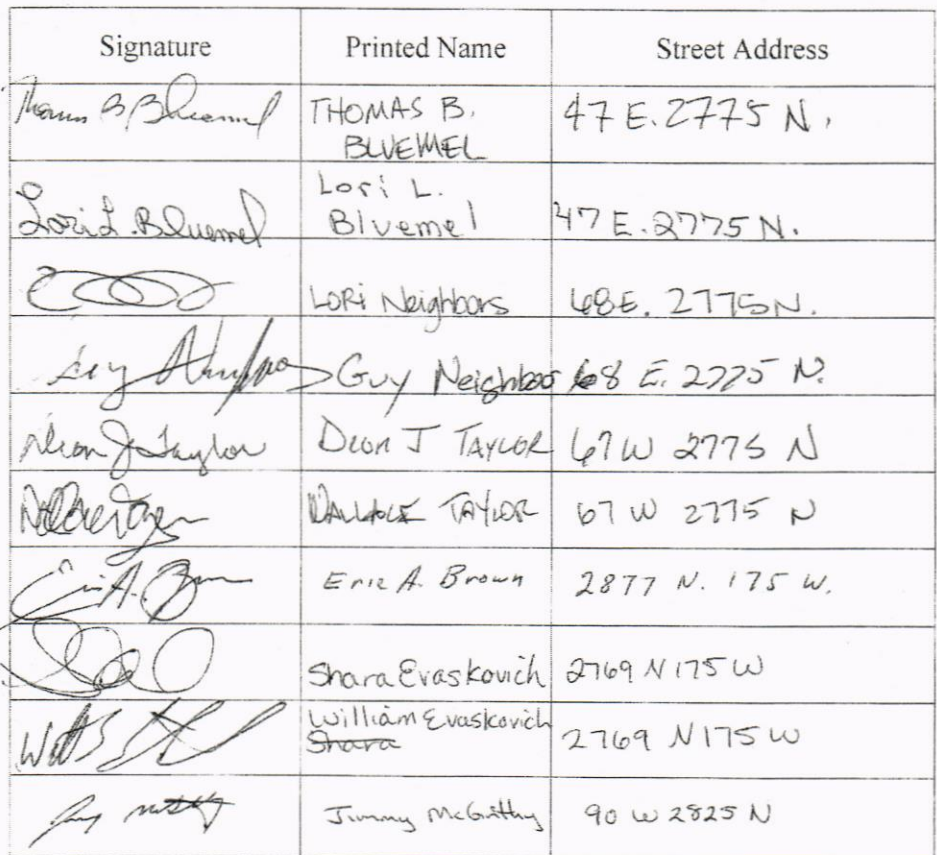 Signature Printed Name Street Address
Thomas B Bluemel THOMAS B. 47 E. 2775 N.
BLUEMEL
Lori L. Bluemel Lori L. 47 E. 2775 N.
Bluemel
LORi Neighbors 68 E. 2775 N.
Guy Neighbors Guy Neighbo 68 E. 2775 N.
Deon J Taylor Deon J TAYLOR 67 W 2775 N
WALLACE TAYLOR 67 W 2775 N
Eric A. Brown Eric A. Brown 2877 N. 175 W.
Shara Evaskovich 2769 N 175 W
William Evaskovich 2769 N 175 W
Shara
Jimmy 90 W 2825 N